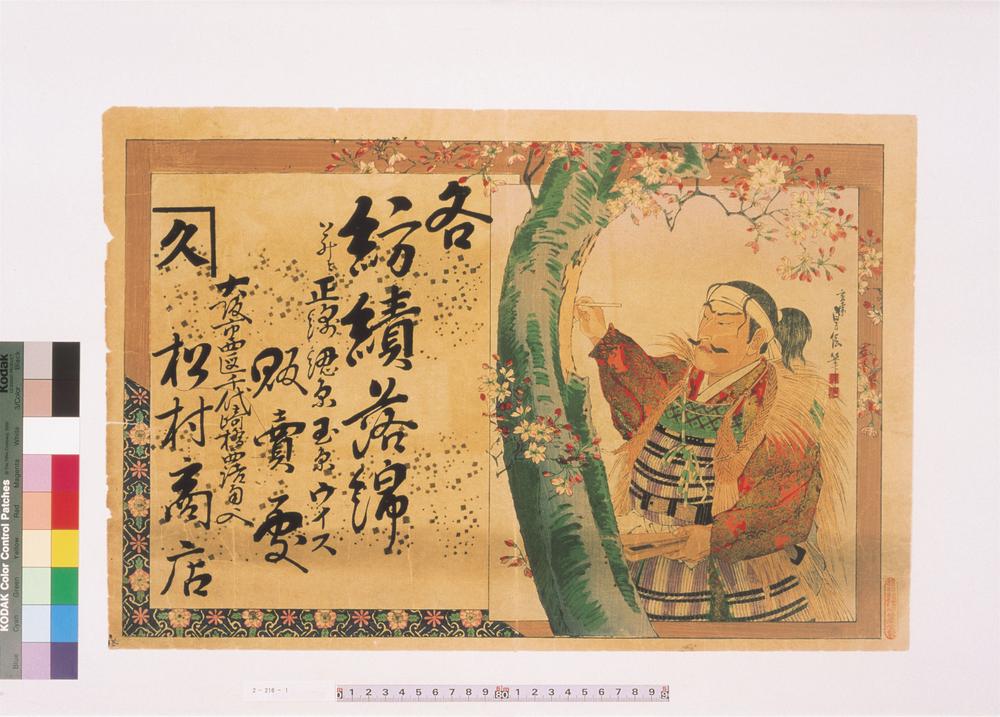 各
紡績落綿
並ニ正綿糸玉糸ウイス
販賣處
大阪市西区千代崎橋西詰南入
久
松村商店
KODAK Color Control Patches
Kodak
Blue
Cyan
Green
Yellow
Red
Magenta
White
3/Color
Black
2-216-1
1 2 3 4 5 6 7 8 9 80 1 2 3 4 5 6 7 8 9